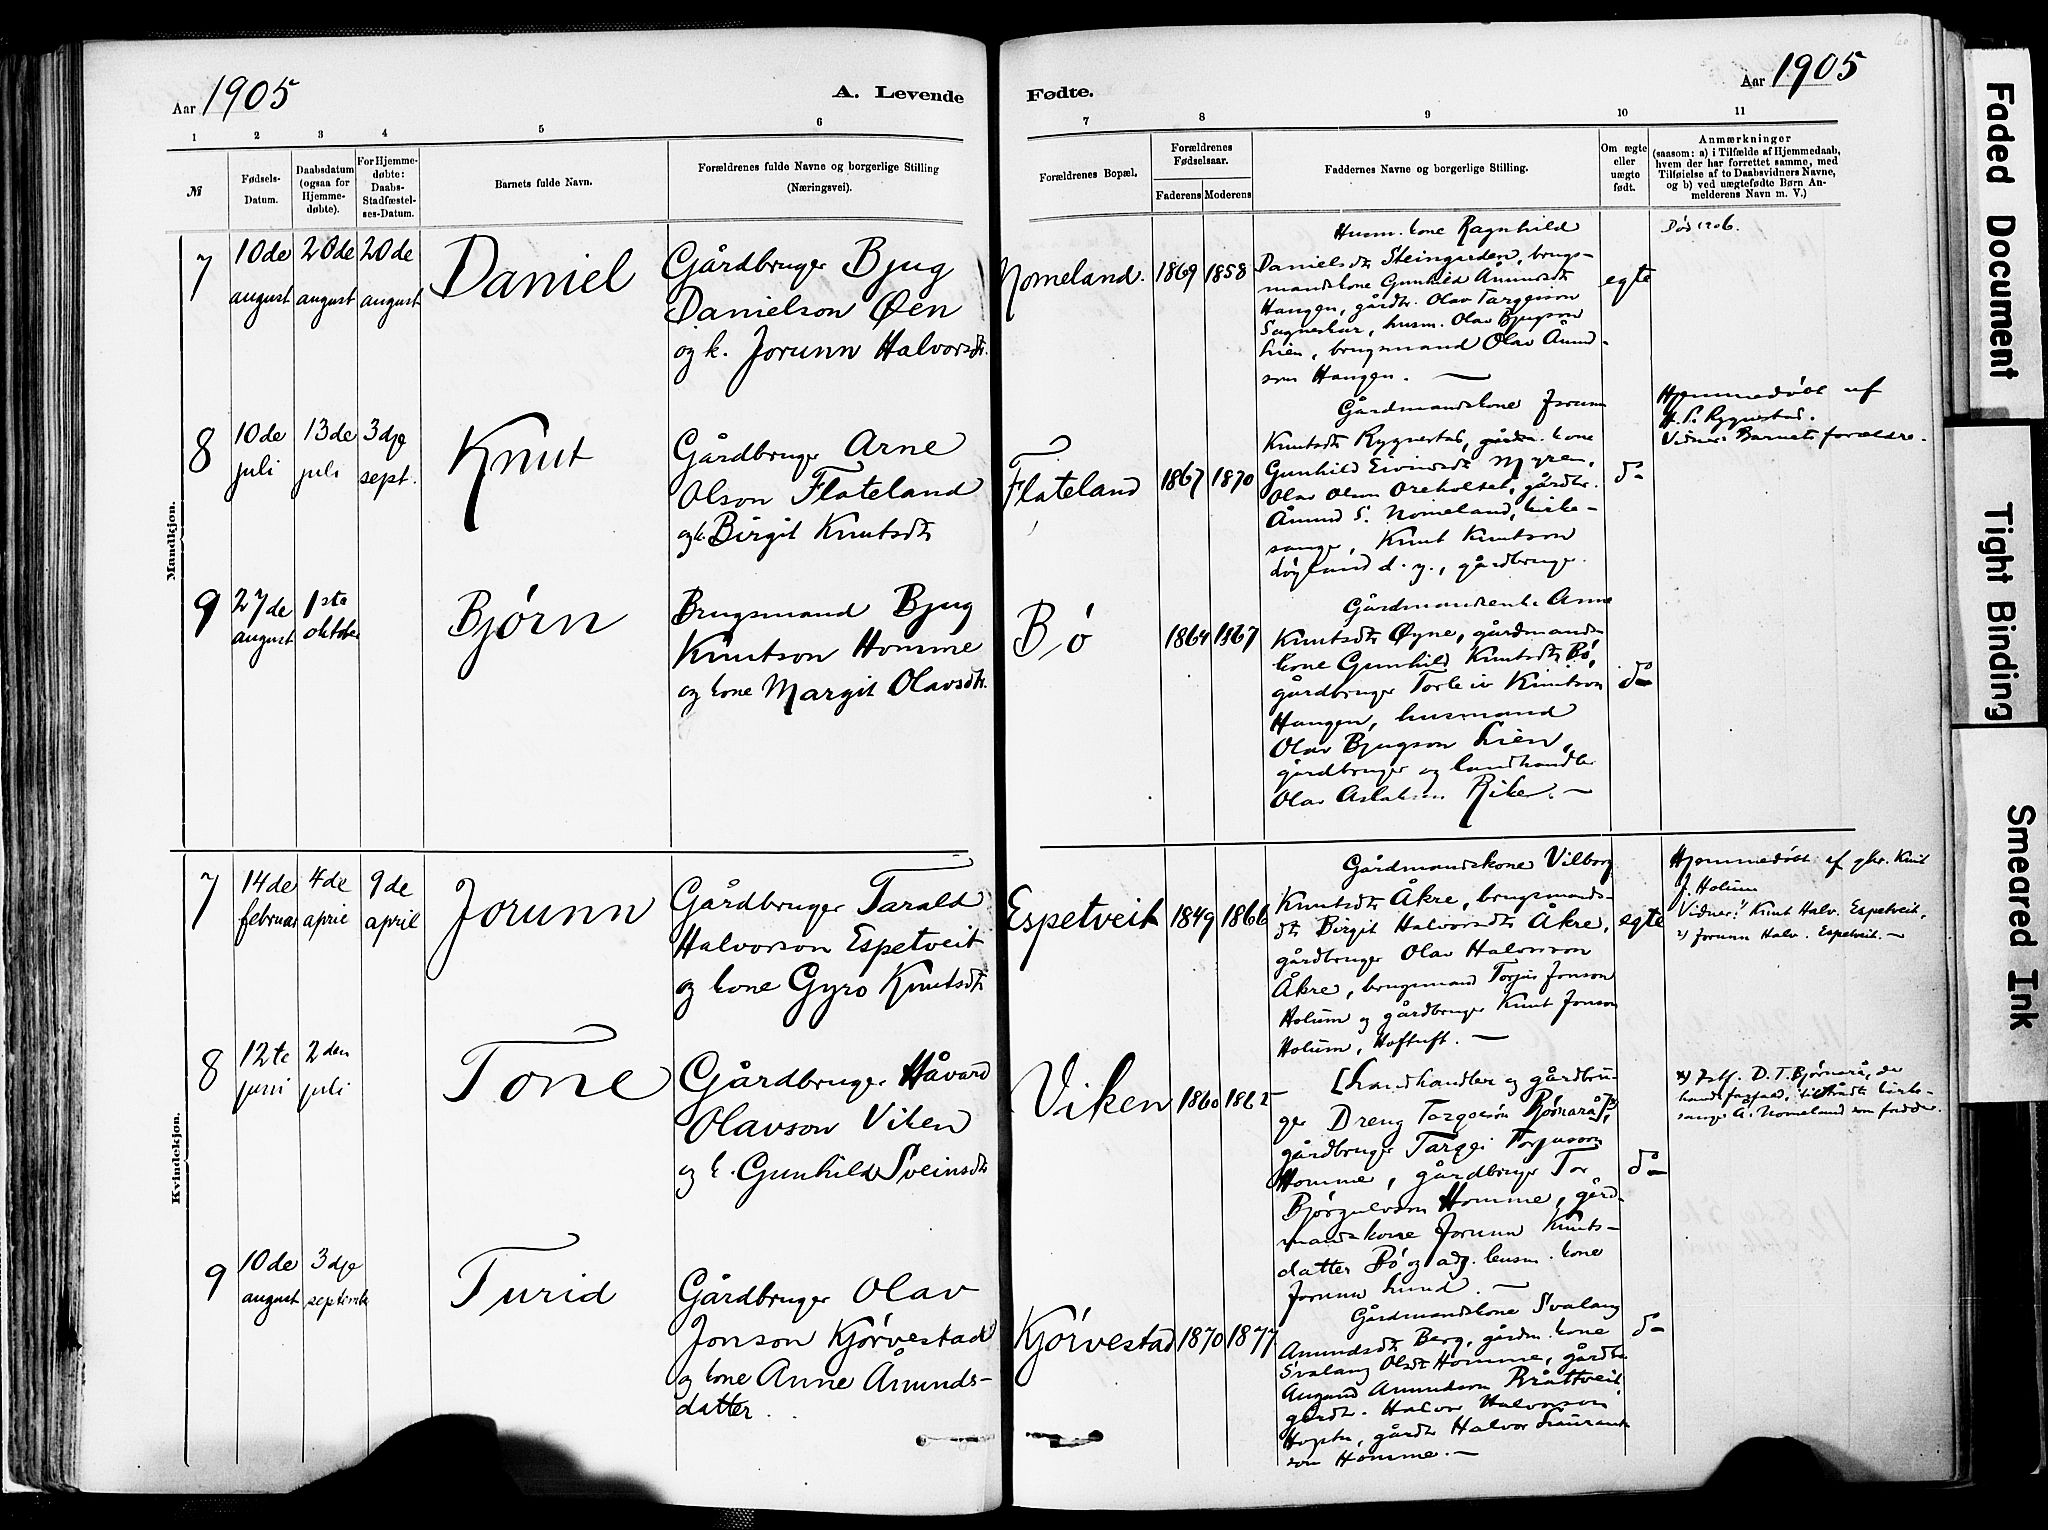 Aar 1905
A. Levende
1 2 3 4 5 6
№
Fødsels-
Datum.
Daabsdatum
(ogsaa for
Hjemme-
døbte).
For Hjemme-
døbte:
Daabs-
Stadfæstel-
ses-Datum.
Barnets fulde Navn.
Forældrenes fulde Navne og borgerlige Stilling
(Næringsvei).
Mandkjøn.
7
10de
august
20de
august
20de
august
Daniel
Gårdbruger Bjug
Danielson Øen
og k. Jorunn Halvorsdtr.
8
10de
juli
13de
juli
3dje
sept.
Knut
Gårdbruger Arne
Olson Flateland
og k. Birgit Knutsdtr
9
27de
august
1ste
oktober
Bjørn
Brugsmand Bjug
Knutson Homme
og kone Margit Olavsdtr.
Kvindekjøn.
7
14de
februar
4de
april
9de
april
Jorunn
Gårdbruger Tarald
Halvorson Espetveit
og kone Gyro Knutsdtr
8
12te
juni
2den
juli
Tone
Gårdbruger Håvard
Olavson Viken
og k. Gunhild Sveinsdtr
9
10de
august
3dje
septembr
Turid
Gårdbruger Olav
Jonson Kjørvestad
og kone Anne Åmunds-
datter.
Fødte.
Aar 1905
7 8 9 10 11
Forældrenes Bopæl.
Forældrenes
Fødselsaar.
Faderens Moderens
Faddernes Navne og borgerlige Stilling.
Om ægte
eller
uægte
født.
Anmærkninger
(saasom: a) i Tilfælde af Hjemmedaab,
hvem der har forrettet samme, med
Tilføielse af to Daabsvidners Navne,
og b) ved uægtefødte Børn An-
melderens Navn m. V.)
Nomeland. 1869 1858
Husm. kone Ragnhild
Danielsdtr Steingarden, brugs-
mandskone Gunhild Åmundsdtr
Haugen, gårdbr. Olav Targeison
husm. Olav Bjugson
Lien, brugsmand Olav Åmund-
son Haugen. —
egte
Død 1906.
Flateland 1867 1870
Gårdmandskone Jorunn
Knutsdtr Rygnestad, gårdm. kone
Gunhild Eivindsdtr Myren,
Olav Olson Oreholtet, gårdbr.
Åmund S. Nomeland, kirke-
sanger, Knut Knutson
d. y., gårdbruger.
do
Hjemmedøbt af
H. S. Rygnestad.
Vidner Barnets forældre.
Bø 1864 1867
Anne
Knutsdtr Øyne, gårdmands-
kone Gunhild Knutsdtr Bø,
gårdbruger Torleiv Knutson
Haugen, husmand
Olav Bjugson Lien,
gårdbruger og landhandler
Olav Aslakson Rike. —
do
Espetveit 1849 1866
Gårdmandskone Vilborg
Knutsdtr Åkre, brugsmands-
dtr Birgit Halvorsdtr Åkre,
gårdbruger Olav Halvorson
Åkre, brugsmand Torjus Jonson
Holum og gårdbruger Knut Jonson
Holum, Hoftuft. —
egte
Hjemmedøbt af gbr. Knut
J. Holum
Vidner: 1) Knut Halv. Espetveit,
2) Jorunn Halv. Espetveit. —
Viken 1860 1862
[Landhandler og gårdbru-
ger Dreng Targeison Bjørnarå],
gårdbruger Targei Torjusson
Homme, gårdbruger Tor
Bjørgulvson Homme, gård-
mandskone Jorunn Knuts-
datter Bø og adj. husm. kone
Jorunn Lund. —
do
D. T. Bjørnarå, da
hans forfald, tilkaldt kirke-
sanger A. Nomeland som fadder.
Kjørvestad 1870 1877
Gårdmandskone Svalaug
Amundsdtr Berg, gårdm. kone
Svalaug Olsdtr Homme, gårdbr.
Augund Amundson Bråttveit,
gårdbr. Halvor Halvorson
gårdbr Halvor
son Homme. —
do
Faded Document
Tight Binding
Smeared Ink